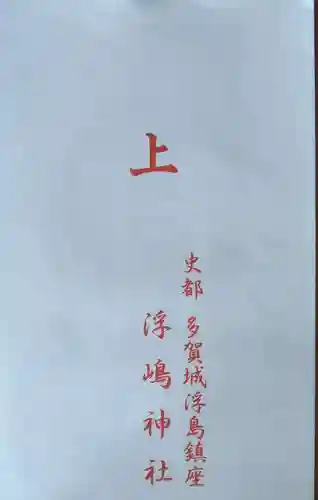 上
史都 多賀城浮島鎮座
浮嶋神社